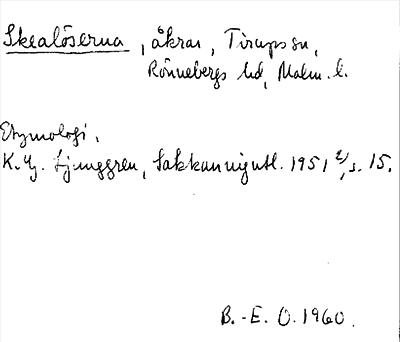 Skealöserna, åkrar, Tirups sn,
Rönnebergs hd, Malm. l.
Etymologi.
K. G. Ljunggren, Sakkunnigutl. 1951 2/, s. 15.
B.-E. O. 1960.